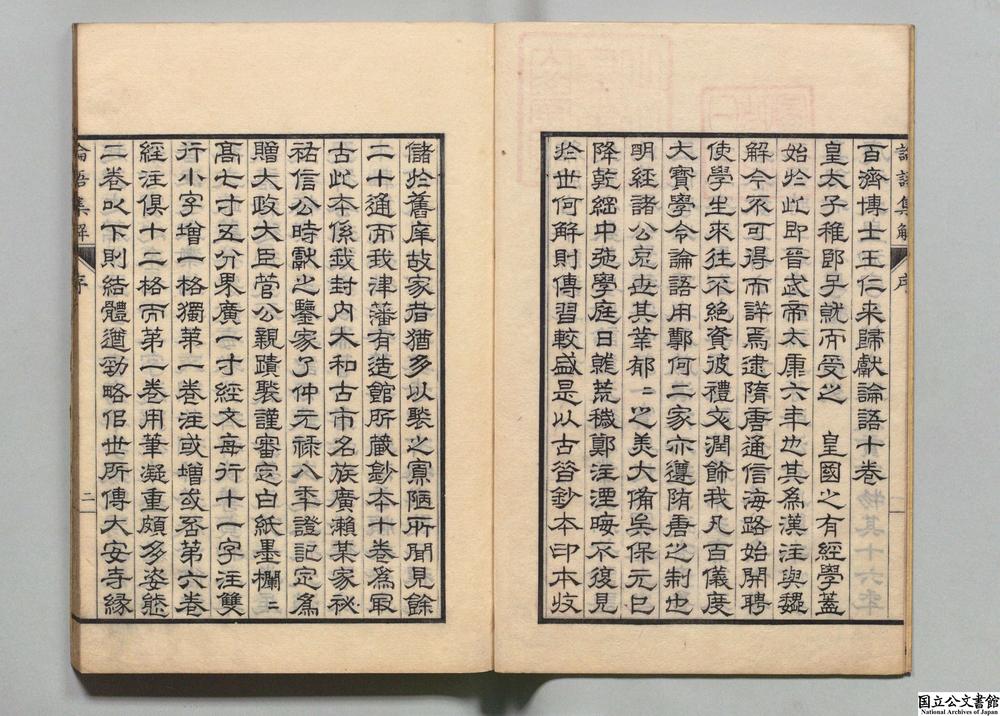 論語集解 序
百濟博士王仁來歸獻論語十卷
皇太子稚郎子就而受之　皇國之有經學蓋
始於此即晉武帝太康六年也其爲漢注與魏
解今不可得而詳焉逮隋唐通信海路始開聘
使學生來往不絕資彼禮文潤飾我凡百儀度
大寶學令論語用鄭何二家亦遵隋唐之制也
明經諸公克世其業郁〻之美大備矣保元已
降乾綱中弛學庭日就荒穢鄭注湮晦不復見
於世何解則傳習較盛是以古昔鈔本印本收
一
儲於舊庠故家者猶多以裴之寡陋所聞見餘
二十通而我津藩有造館所藏鈔本十卷爲最
古此本係我封內大和古市名族廣瀨某家祕
祐信公時獻之鑒家了仲元祿八年證記定爲
贈大政大臣菅公親蹟裴謹審定白紙墨欄〻
高七寸五分界廣一寸經文每行十一字注雙
行小字增一格獨第一卷注或增或否第六卷
經注俱十二格而第一卷用筆凝重頗多姿態
二卷以下則結體遒勁略佀世所傳大安寺緣
論語集解 序
二
国立公文書館
National Archives of Japan